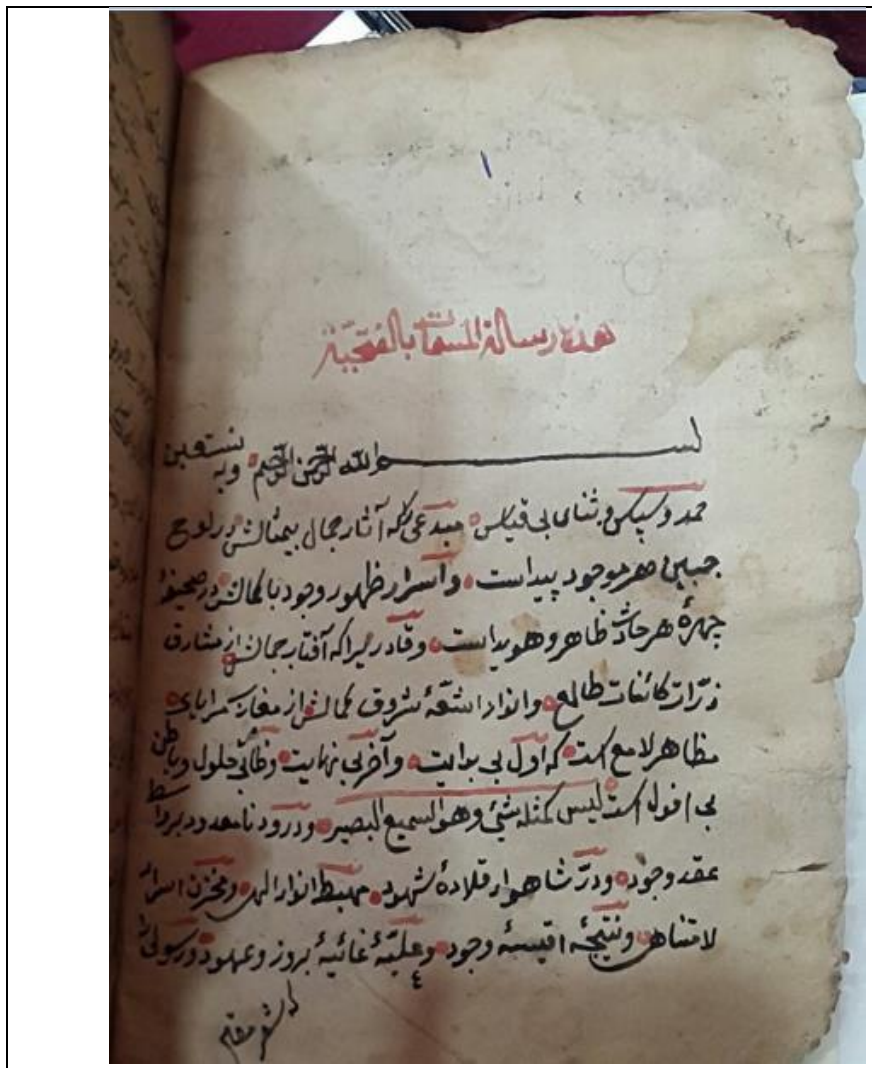 ١
هذه رسالة المسمات بالفتحیّة
بسم الله الرحمن الرحیم وبه نستعین
حمد وسپاس وثنای بی قیاس مبدعی را که آثار جمال بیمثالش در لوح
جبین هر موجود پیداست واسرار ظهور وجود با کمالش در صحیفهٔ
چهرهٔ هر حادث ظاهر وهویداست وقادریرا که آفتاب جمالش از مشارق
ذرّات کائنات طالع وانوار اشعّهٔ شروق کمالش از مغارب مرایای
مظاهر لامع است که اوّل بی بدایت وآخر بی نهایت وظاهر بی حلول وباطن
بی افول است لیس کمثله شیئ وهو السمیع البصیر ودرود نامعدود بر واسطهٔ
عقد وجود ودرّ شاهوار قلادهٔ شهود مهبط انوار الهی ومخزن اسرار
لامتناهی ونتیجهٔ اقیسهٔ وجود وعلیّهٔ غائیهٔ بروز وعهود ورسولی
٤